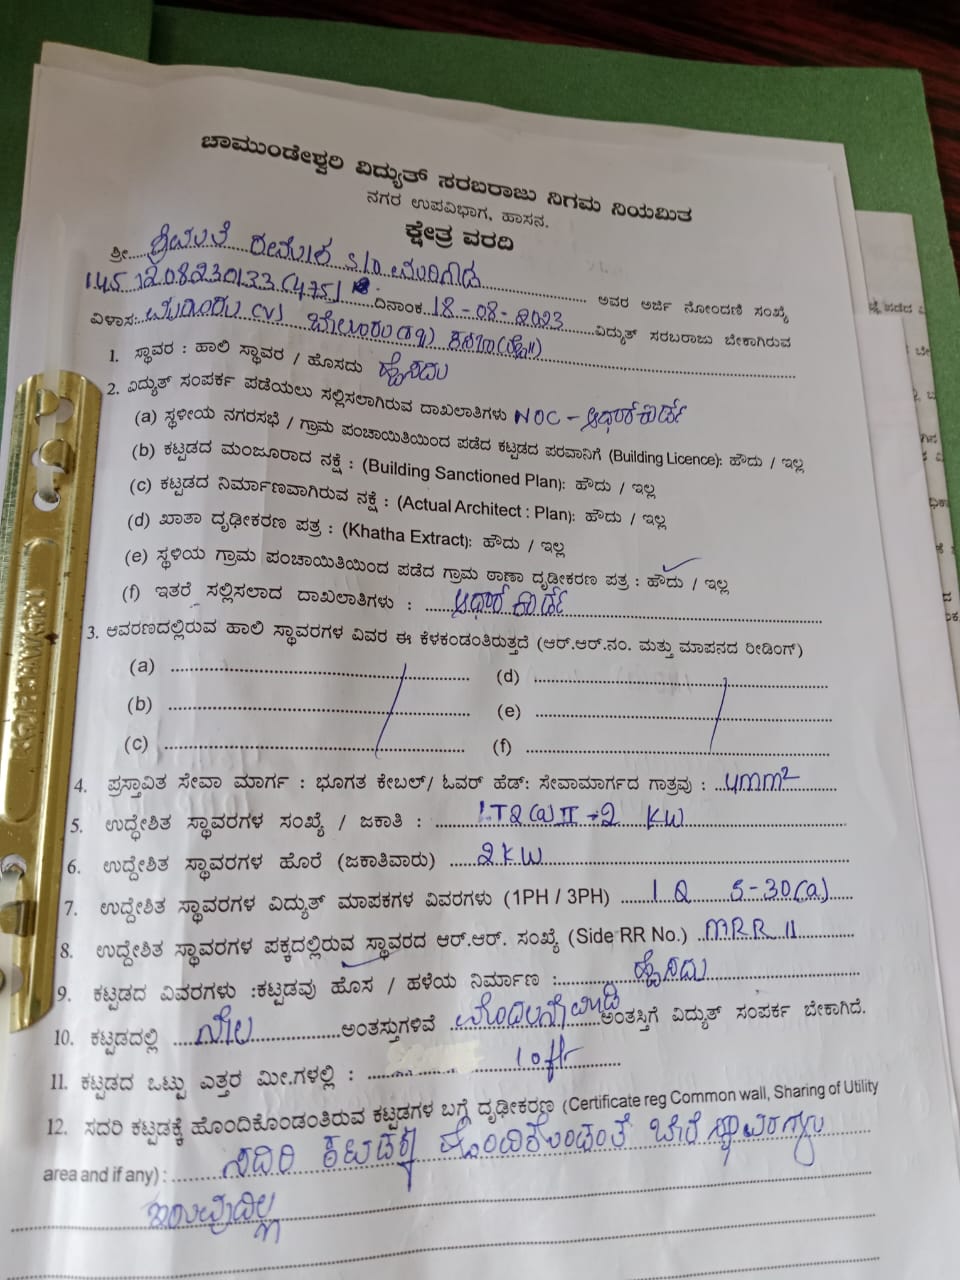 ಚಾಮುಂಡೇಶ್ವರಿ ವಿದ್ಯುತ್ ಸರಬರಾಜು ನಿಗಮ ನಿಯಮಿತ
ನಗರ ಉಪವಿಭಾಗ, ಹಾಸನ.
ಕ್ಷೇತ್ರ ವರದಿ
ಶ್ರೀ. S/O ಅವರ ಅರ್ಜಿ ನೋಂದಣಿ ಸಂಖ್ಯೆ
ದಿನಾಂಕ. 18-08-2023 ವಿದ್ಯುತ್ ಸರಬರಾಜು ಬೇಕಾಗಿರುವ
ವಿಳಾಸ:
1. ಸ್ಥಾವರ : ಹಾಲಿ ಸ್ಥಾವರ / ಹೊಸದು ಹೊಸದು
2. ವಿದ್ಯುತ್ ಸಂಪರ್ಕ ಪಡೆಯಲು ಸಲ್ಲಿಸಲಾಗಿರುವ ದಾಖಲಾತಿಗಳು NOC - ಆಧಾರ್ ಕಾರ್ಡ್
(a) ಸ್ಥಳೀಯ ನಗರಸಭೆ / ಗ್ರಾಮ ಪಂಚಾಯಿತಿಯಿಂದ ಪಡೆದ ಕಟ್ಟಡದ ಪರವಾನಿಗೆ (Building Licence): ಹೌದು / ಇಲ್ಲ
(b) ಕಟ್ಟಡದ ಮಂಜೂರಾದ ನಕ್ಷೆ : (Building Sanctioned Plan): ಹೌದು / ಇಲ್ಲ
(c) ಕಟ್ಟಡದ ನಿರ್ಮಾಣವಾಗಿರುವ ನಕ್ಷೆ : (Actual Architect : Plan): ಹೌದು / ಇಲ್ಲ
(d) ಖಾತಾ ದೃಢೀಕರಣ ಪತ್ರ : (Khatha Extract): ಹೌದು / ಇಲ್ಲ
(e) ಸ್ಥಳಿಯ ಗ್ರಾಮ ಪಂಚಾಯಿತಿಯಿಂದ ಪಡೆದ ಗ್ರಾಮ ಠಾಣಾ ದೃಢೀಕರಣ ಪತ್ರ : ಹೌದು / ಇಲ್ಲ
(f) ಇತರೆ ಸಲ್ಲಿಸಲಾದ ದಾಖಲಾತಿಗಳು : ಆಧಾರ್ ಕಾರ್ಡ್
3. ಆವರಣದಲ್ಲಿರುವ ಹಾಲಿ ಸ್ಥಾವರಗಳ ವಿವರ ಈ ಕೆಳಕಂಡಂತಿರುತ್ತದೆ (ಆರ್.ಆರ್.ನಂ. ಮತ್ತು ಮಾಪನದ ರೀಡಿಂಗ್)
(a) (d)
(b) (e)
(c) (f)
4. ಪ್ರಸ್ತಾವಿತ ಸೇವಾ ಮಾರ್ಗ : ಭೂಗತ ಕೇಬಲ್/ ಓವರ್ ಹೆಡ್: ಸೇವಾಮಾರ್ಗದ ಗಾತ್ರವು : 4mm²
5. ಉದ್ಧೇಶಿತ ಸ್ಥಾವರಗಳ ಸಂಖ್ಯೆ / ಜಕಾತಿ : LT2(a)II-2 KW
6. ಉದ್ದೇಶಿತ ಸ್ಥಾವರಗಳ ಹೊರೆ (ಜಕಾತಿವಾರು) 2KW
7. ಉದ್ದೇಶಿತ ಸ್ಥಾವರಗಳ ವಿದ್ಯುತ್ ಮಾಪಕಗಳ ವಿವರಗಳು (1PH / 3PH) 5-30(a)
8. ಉದ್ದೇಶಿತ ಸ್ಥಾವರಗಳ ಪಕ್ಕದಲ್ಲಿರುವ ಸ್ಥಾವರದ ಆರ್.ಆರ್. ಸಂಖ್ಯೆ (Side RR No.) MRR 11
9. ಕಟ್ಟಡದ ವಿವರಗಳು :ಕಟ್ಟಡವು ಹೊಸ / ಹಳೆಯ ನಿರ್ಮಾಣ : ಹೊಸದು
10. ಕಟ್ಟಡದಲ್ಲಿ ನೆಲ ಅಂತಸ್ತುಗಳಿವೆ ಅಂತಸ್ತಿಗೆ ವಿದ್ಯುತ್ ಸಂಪರ್ಕ ಬೇಕಾಗಿದೆ.
11. ಕಟ್ಟಡದ ಒಟ್ಟು ಎತ್ತರ ಮೀ.ಗಳಲ್ಲಿ : 10ft
12. ಸದರಿ ಕಟ್ಟಡಕ್ಕೆ ಹೊಂದಿಕೊಂಡಂತಿರುವ ಕಟ್ಟಡಗಳ ಬಗ್ಗೆ ದೃಢೀಕರಣ (Certificate reg Common wall, Sharing of Utility
area and if any) : ಸದರಿ ಕಟ್ಟಡಕ್ಕೆ ಹೊಂದಿಕೊಂಡಂತೆ ಬೇರೆ ಸ್ಥಾವರಗಳು
ಇರುವುದಿಲ್ಲ